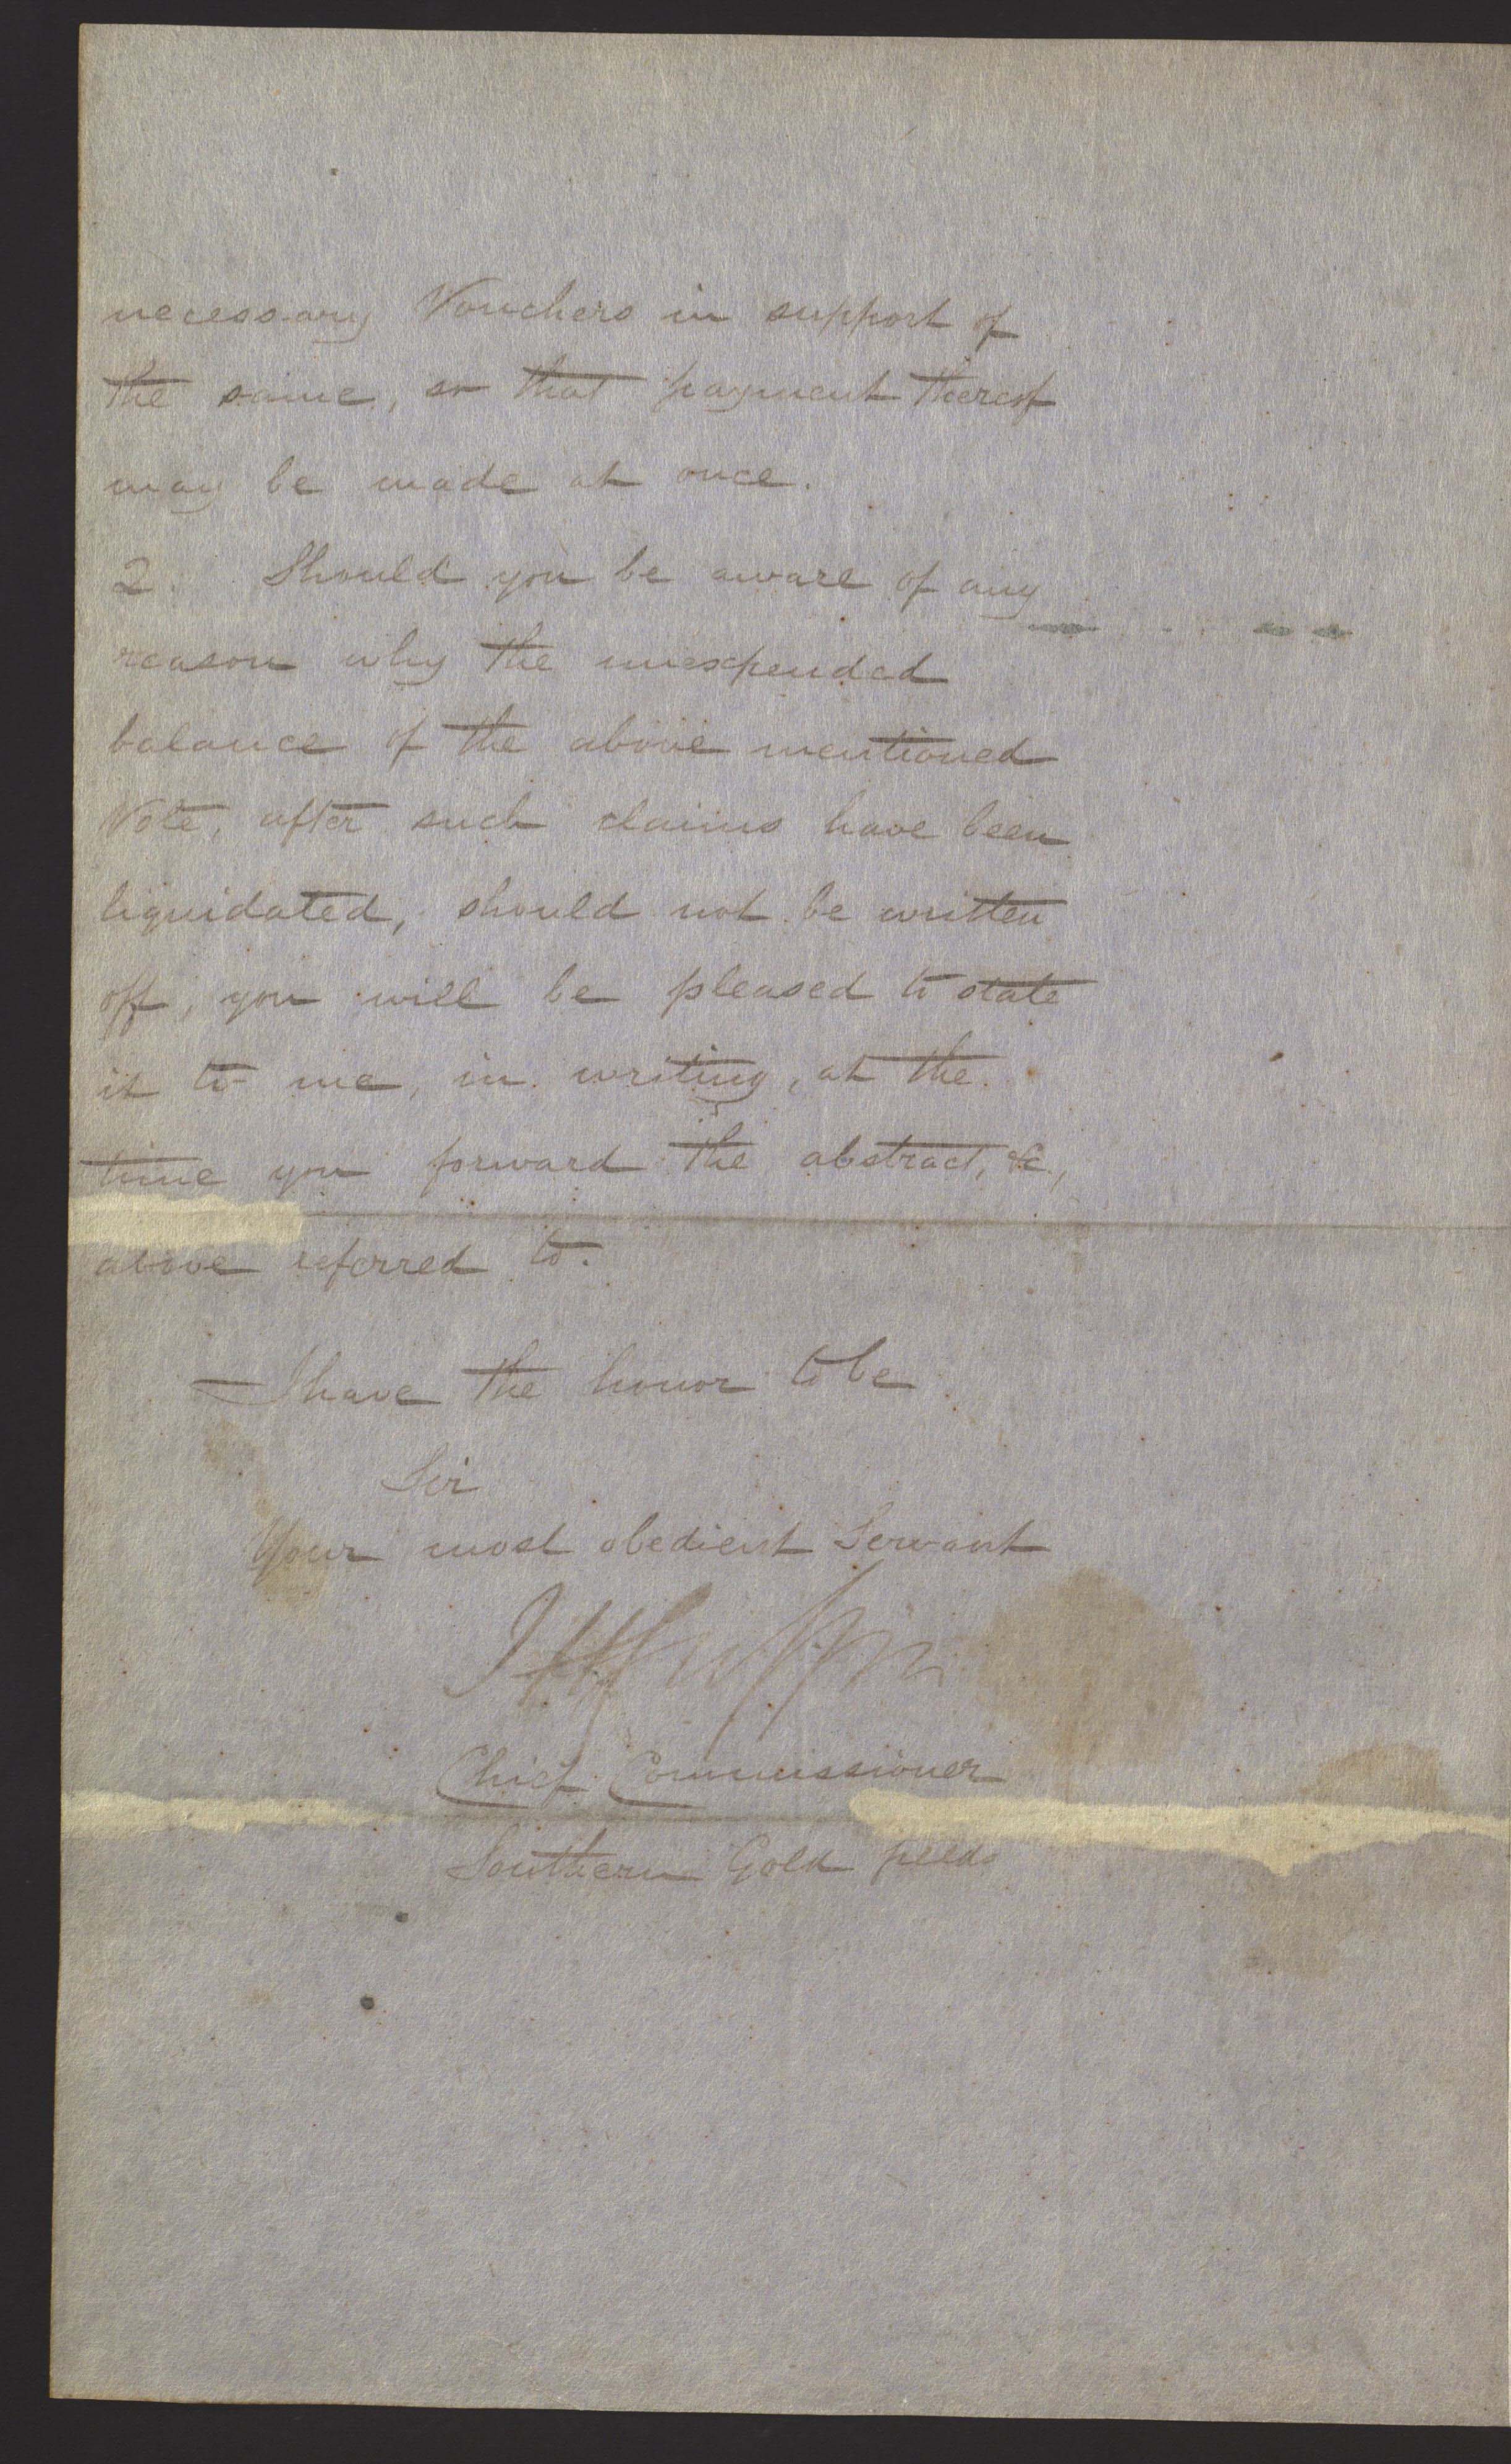 necessary Vouchers in support of
the same, so that payment thereof
may be made at once.
2. Should you be aware of any
reason why the unexpended
balance of the above mentioned
Vote, after such claims have been
liquidated, should not be written
off, you will be pleased to state
it to me, in writing, at the
time you forward the abstract, &c.,
above referred to.
I have the honor to be
Sir
Your most obedient Servant
Chief Commissioner
Southern Gold fields